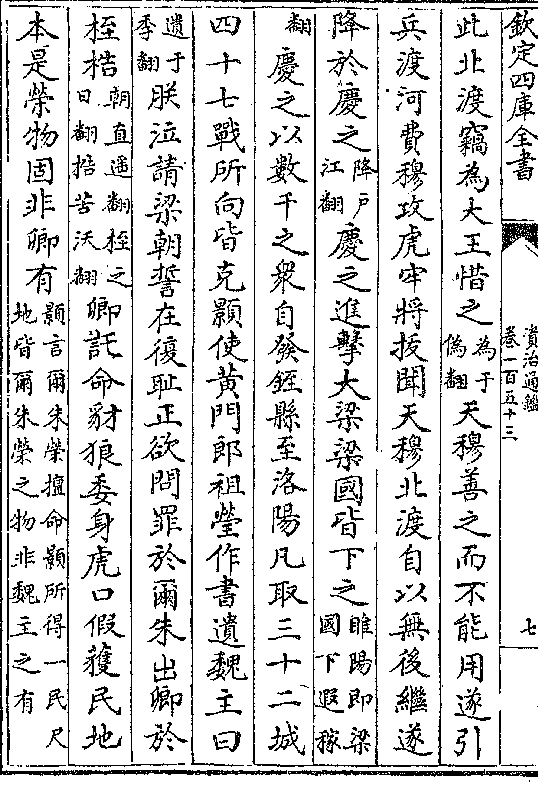 欽定四庫全書
資治通鑑
卷一百五十三
七
此北渡竊為大王惜之為于偽翻天穆善之而不能用遂引
兵渡河費穆攻虎牢將拔聞天穆北渡自以無後繼遂
降於慶之降戶江翻慶之進擊大梁梁國皆下之睢陽即梁國下遐稼
翻慶之以數千之衆自發銍縣至洛陽凡取三十二城
四十七戰所向皆克顥使黃門郎祖瑩作書遺魏主曰
遺于季翻朕泣請梁朝誓在復恥正欲問罪於爾朱出卿於
桎梏朝直遥翻桎之日翻梏苦沃翻卿託命豺狼委身虎口假獲民地
本是榮物固非卿有顥言爾朱榮擅命顥所得一民尺地皆爾朱榮之物非魏主之有